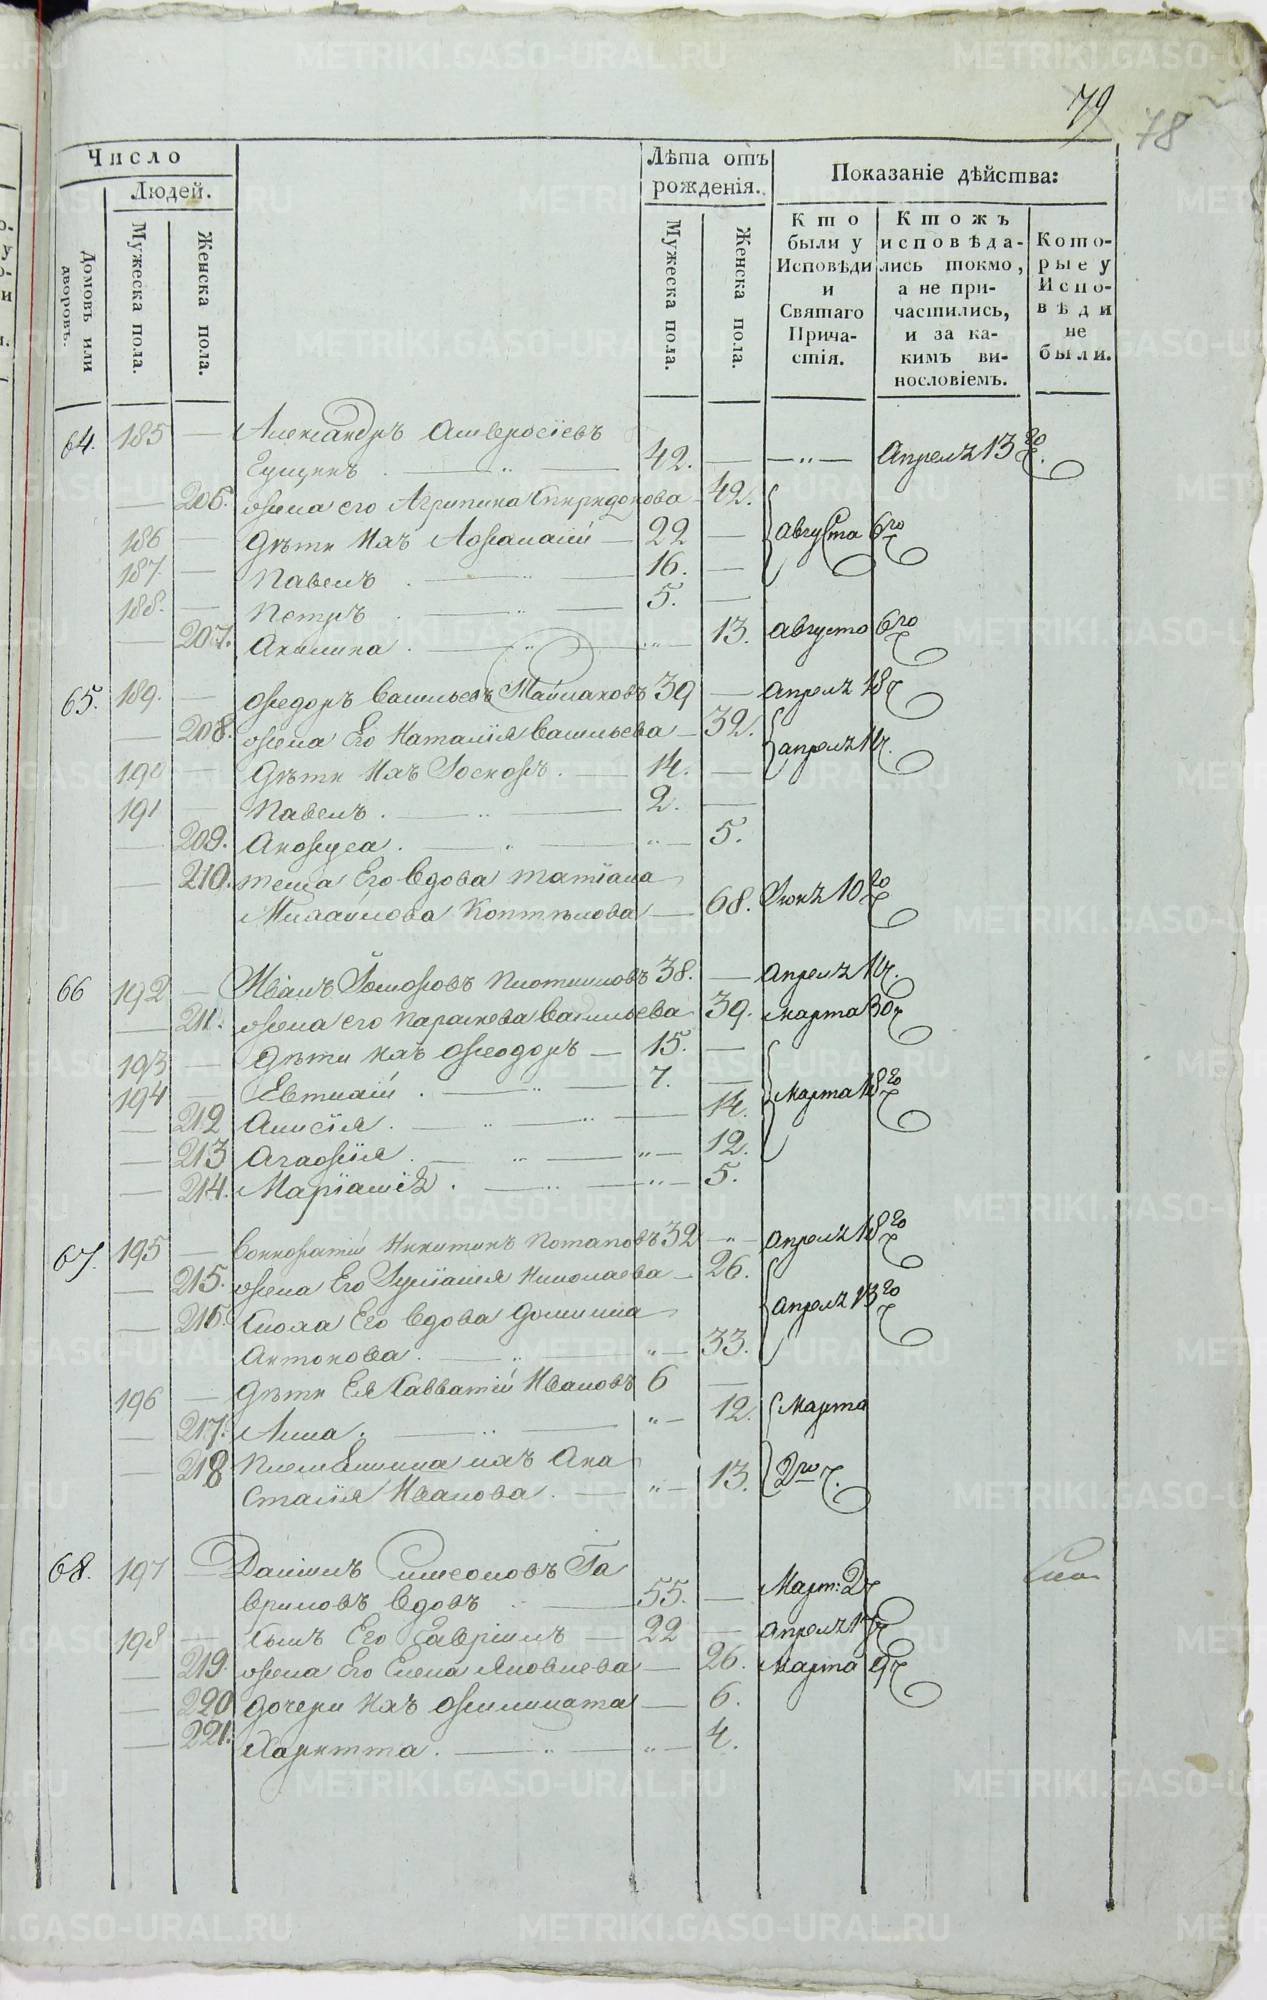 79
78
Число
Людей.
Домовъ или дворовъ.
Мужеска пола.
Женска пола.
Лѣта отъ рожденія.
Мужеска пола.
Женска пола.
Показаніе дѣйства:
Кто были у Исповѣди и Святаго Причастія.
Ктожъ исповѣдались токмо, а не причастились, и за какимъ винословіемъ.
Которые у Исповѣди не были.
64. 185 — Александръ Амвросіевъ
42. — — „ — Апрелъ 13го
— 206. жена его Агрипина Спиридонова — 42.
186 — Дѣти Ихъ Афанасій — 22 — августа 6го
187. — Павелъ . — „ — 16. —
188. — Петръ . — „ — 5. —
— 207. Акилина . — „ — „ — 13. августо 6го
65. 189. — Федоръ Васильевъ 39 — апрелъ 18
— 208. жена Его Наталія Васильева — 32.
190 — Дѣти Ихъ Іосифъ . — 14. — апрелъ
191 — Павелъ . — „ — 2. —
— 209. Анфуса . — „ — „ — 5.
— 210. теща Его вдова татіана
Михайлова — 68. Іюнъ 10го
66 192 — Иванъ Плотниковъ 38. — апрелъ
— 211. жена его параскева Васильева 39. марта 30
193 — Дѣти ихъ Феодоръ — 15. —
194 Евтихій . — „ — 7. — Марта 18го
— 212 Анисія . — „ — „ — 14.
— 213 Агафія . — „ — „ — 12.
— 214. Маріамія . — „ — „ — 5.
67. 195 — Никитинъ Потаповъ 32 — „ — апрелъ 18го
— 215. жена Его Іуліанія Николаева — 26.
— 216. Сноха Его вдова Домнина апрелъ 13го
Антонова . — „ — „ — 33.
196 — Дѣти Ея Савватій Ивановъ 6 —
— 217. Анна . — „ — „ — 12. Марта
— 218 Племянница ихъ Ана
стасія Иванова . — „ — 13. 2го
68. 197 — Даніилъ Симеоновъ Га
вриловъ вдовъ — 55. — Март: 2
198 — Сынъ Его Гавріилъ — 22 — апрелъ 17
— 219. жена Его Елена Яковлева — 26. марта 9
— 220 дочери Ихъ Филицата — 6.
— 221. Харитта . — „ — „ — 4.
METRIKI.GASO-URAL.RU